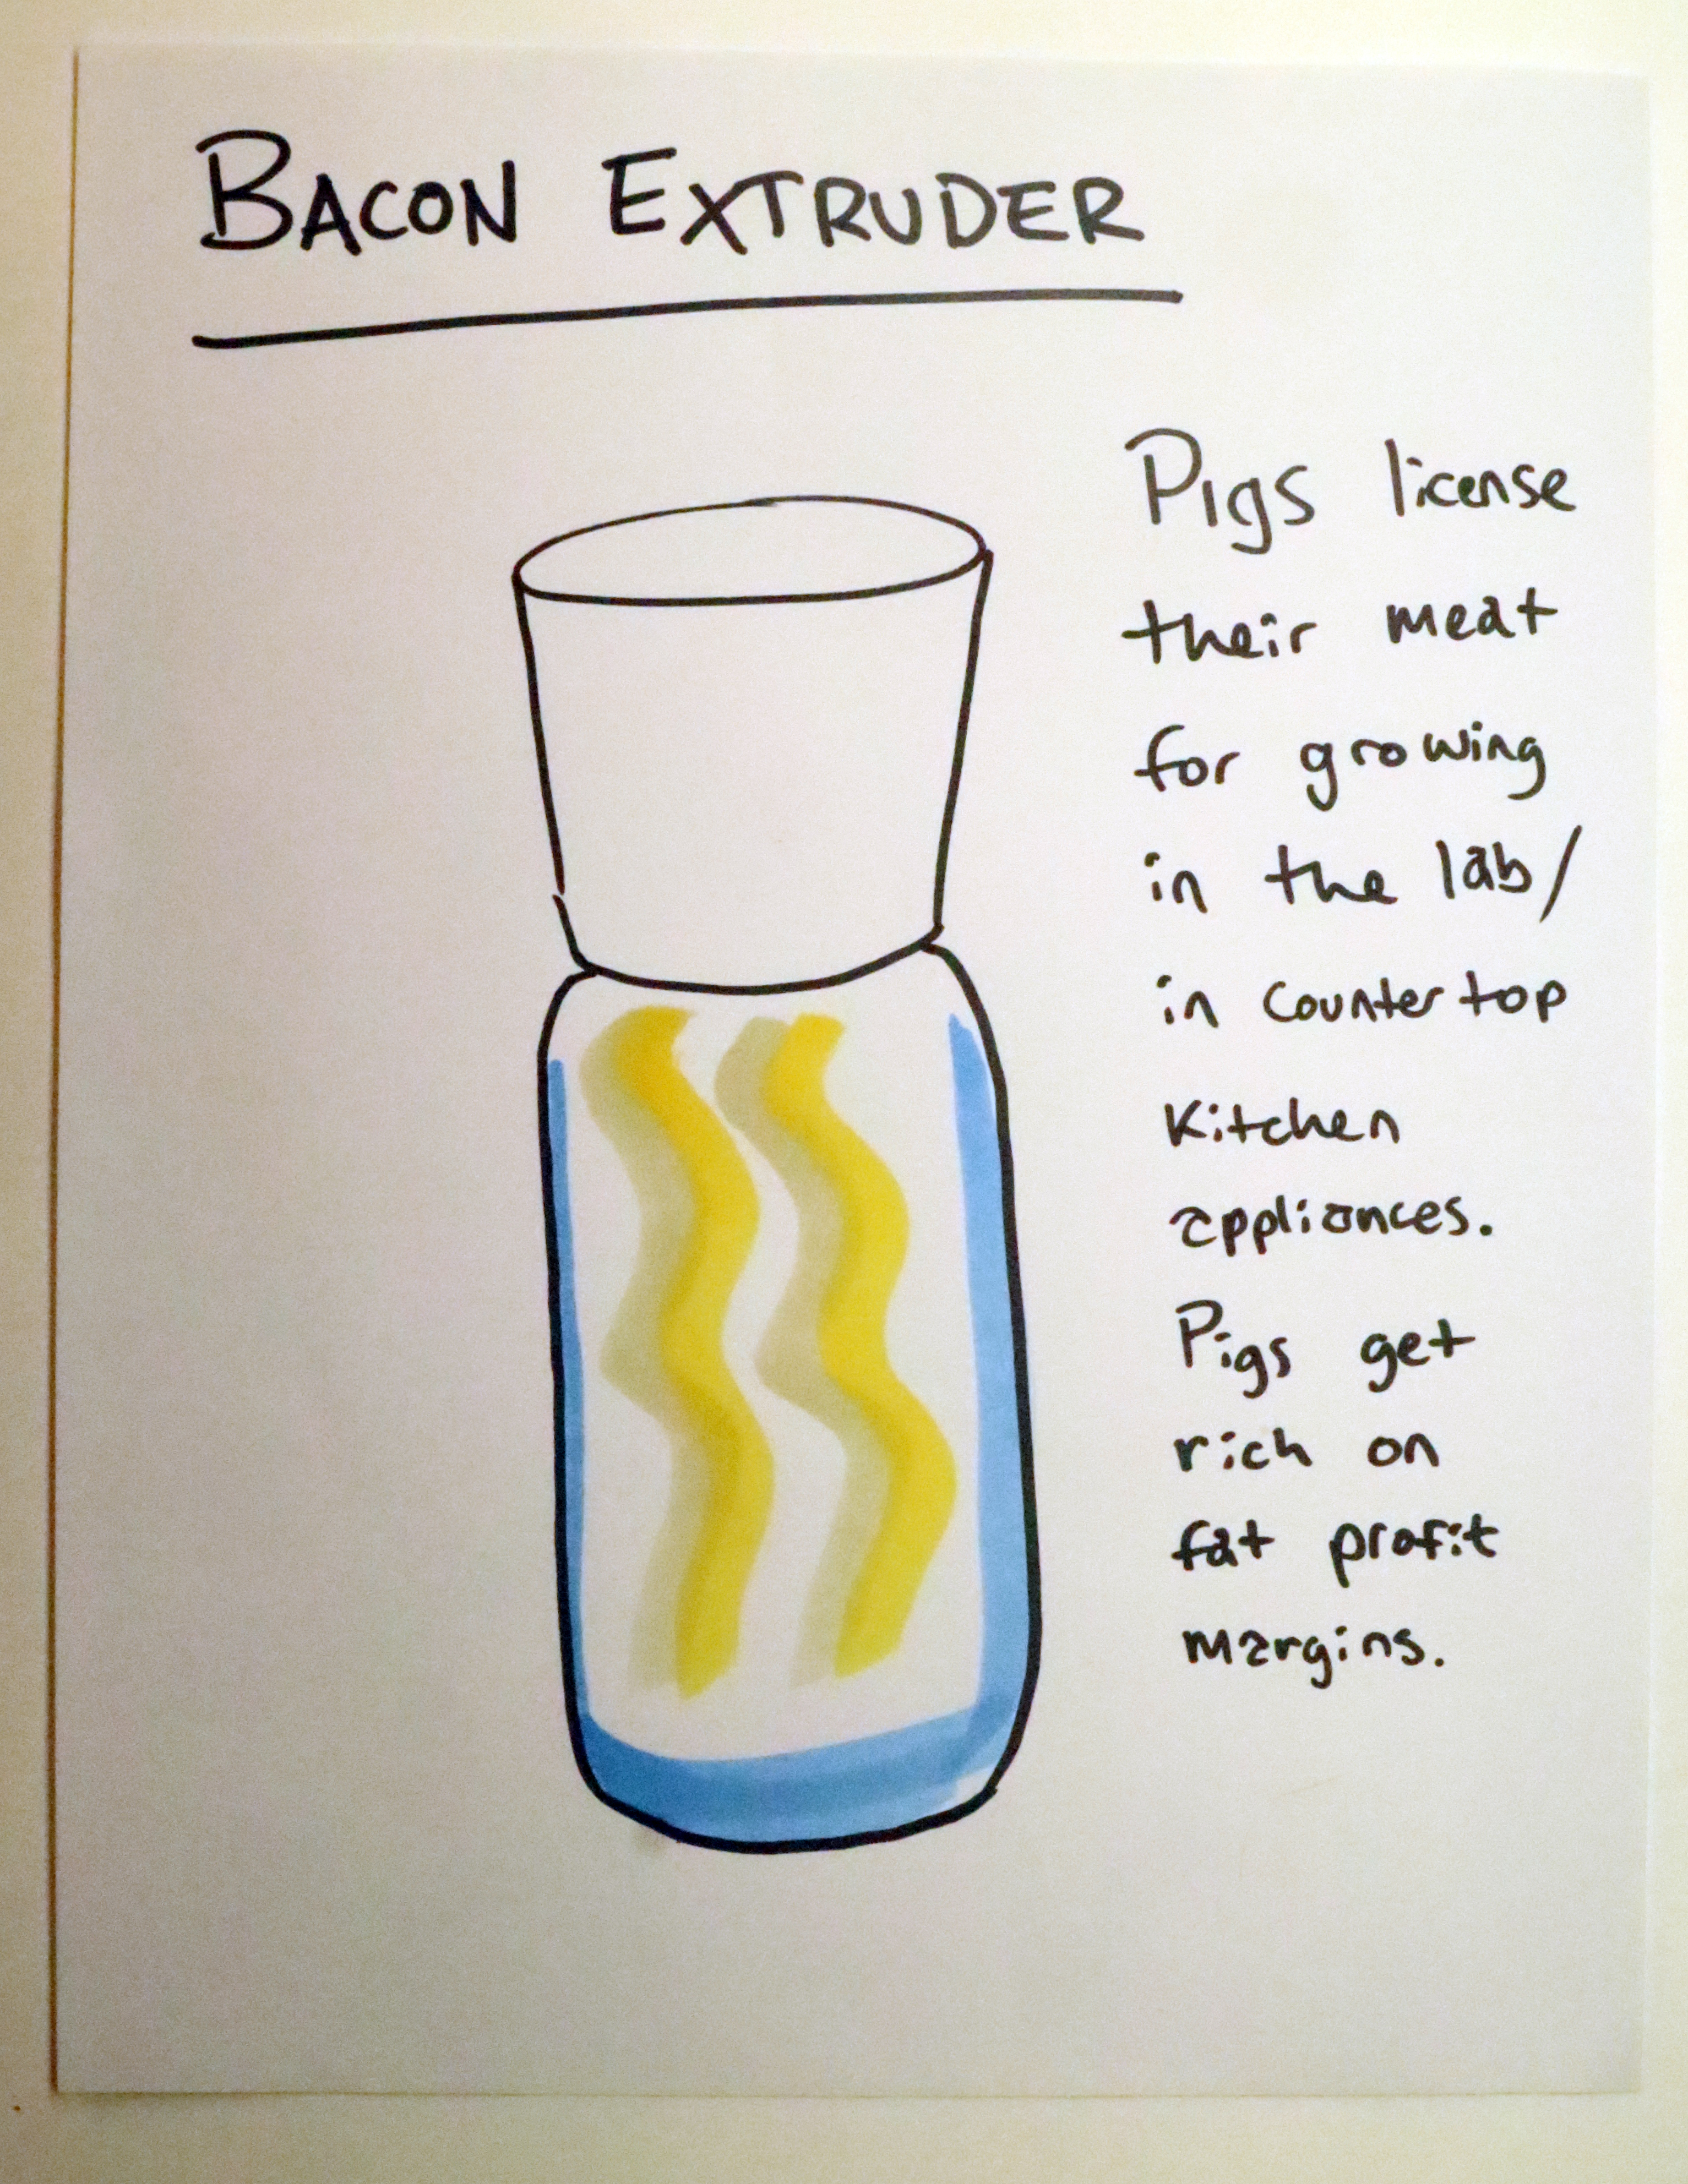 BACON EXTRUDER
Pigs license
their meat
for growing
in the lab/
in countertop
kitchen
appliances.
Pigs get
rich on
fat profit
margins.